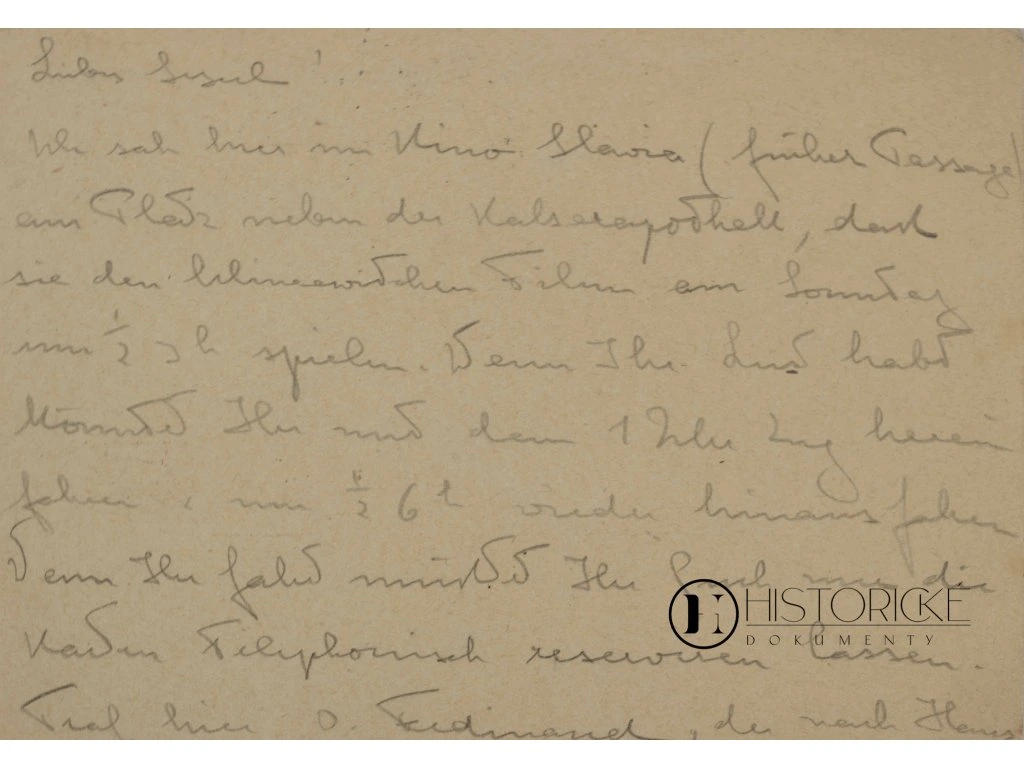 Liebes !
Ich sah hier im Kino Slavia (früher Passage)
am Platz neben der Kaiserapothek, dass
sie den Film am Sonntag
um ½ 3h spielen. Wenn Ihr Lust habt
könntet Ihr mit dem 1 Uhr Zug herein
fahren & um ½ 6h wieder hinausfahren
Wenn Ihr fahrt müsstet Ihr Euch nur die
Karten Telephonisch reservieren lassen.
Traf hier O. Ferdinand, der nach Haus
HISTORICKÉ
DOKUMENTY